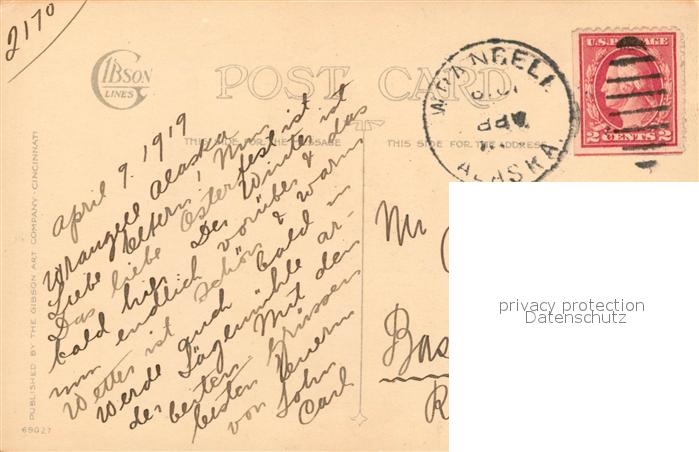 2170
GIBSON
LINES
POST CARD
THIS SIDE FOR THE MESSAGE
THIS SIDE FOR THE ADDRESS
WRANGELL
ALASKA
U.S. POSTAGE
2 CENTS 2
April 9. 1919
Wrangell Alaska
Liebe Eltern! Nun
Das liebe Osterfest ist
bald hir. Der Winter ist
nun endlich vorüber & das
Wetter ist schön & warm
Werde auch bald in
der Sägemühle ar-
besten Mit den
besten Grüssen
von Euerm
Sohn
Carl
Mr
Bas
R
privacy protection
Datenschutz
PUBLISHED BY THE GIBSON ART COMPANY, CINCINNATI
69027